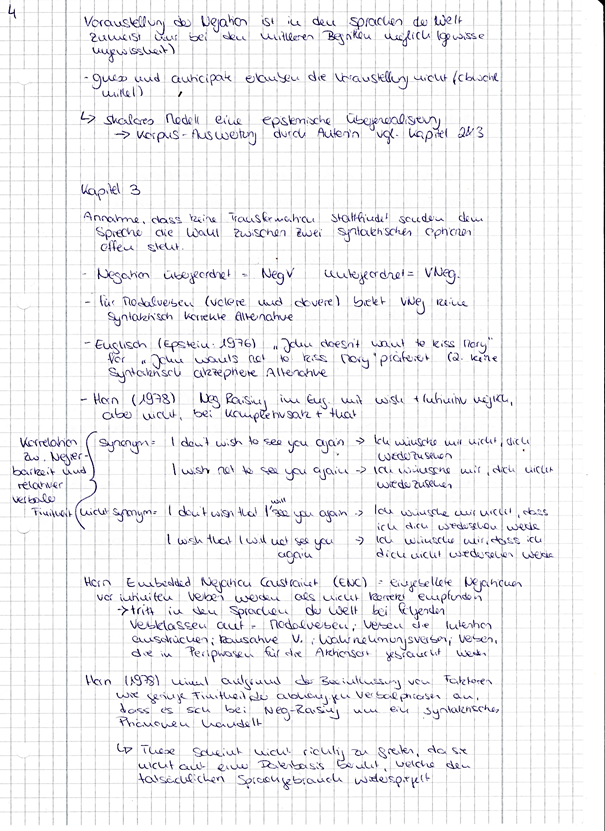 4
Voranstellung der Negation ist in den Sprachen der Welt
zumeist nur bei den mittleren Begriffen möglich (gewisse
ungewissheit)
- guess und anticipate erlauben die Voranstellung nicht (obwohl
mittel)
↳ skalares Modell eine epistemische Übergeneralisierung
→ Korpus-Ausweitung durch Autorin vgl. Kapitel 2&3
Kapitel 3
Annahme, dass keine Transformation stattfindet sondern dem
Sprecher die Wahl zwischen zwei syntaktischen Optionen
offen steht.
- Negation übergeordnet = NegV untergeordnet = VNeg.
- für Modalverben (volere und dovere) bietet VNeg keine
syntaktisch korrekte Alternative
- Englisch (Epstein: 1976) „John doesn't want to kiss Mary"
für „John wants not to kiss Mary" präferiert (2. keine
syntaktisch akzeptierte Alternative
- Horn (1978) Neg Raising im Eng. mit wish + Infinitiv möglich,
aber nicht, bei Komplettivsatz + that
Korrelation
zw. Negier-
barkeit und
relativer
verbaler
Finitheit
synonym = I don't wish to see you again → Ich wünsche mir nicht, dich
wiederzusehen
I wish not to see you again → Ich wünsche mir, dich nicht
wiederzusehen
nicht synonym = I don't wish that I will see you again → Ich wünsche mir nicht, dass
ich dich wiedersehen werde
I wish that I will not see you → Ich wünsche mir, dass ich
again dich nicht wiedersehen werde
Horn Embedded Negation Constraint (ENC) = eingebettete Negationen
vor infiniten Verben werden als nicht korrekt empfunden
→ tritt in den Sprachen der Welt bei folgenden
Verbklassen auf = Modalverben; Verben die Intention
ausdrücken; kausative V.; Wahrnehmungsverben; Verben,
die in Periphrasen für die Aktionsart gebraucht werden
Horn (1978) nimmt aufgrund der Beeinflussung von Faktoren
wie geringe Finitheit der abhängigen Verbalphrasen an,
dass es sich bei Neg-Raising um ein syntaktisches
Phänomen handelt
↳ These scheint nicht richtig zu greifen, da sie
nicht auf eine Datenbasis beruht, welche den
tatsächlichen Sprachgebrauch widerspiegelt